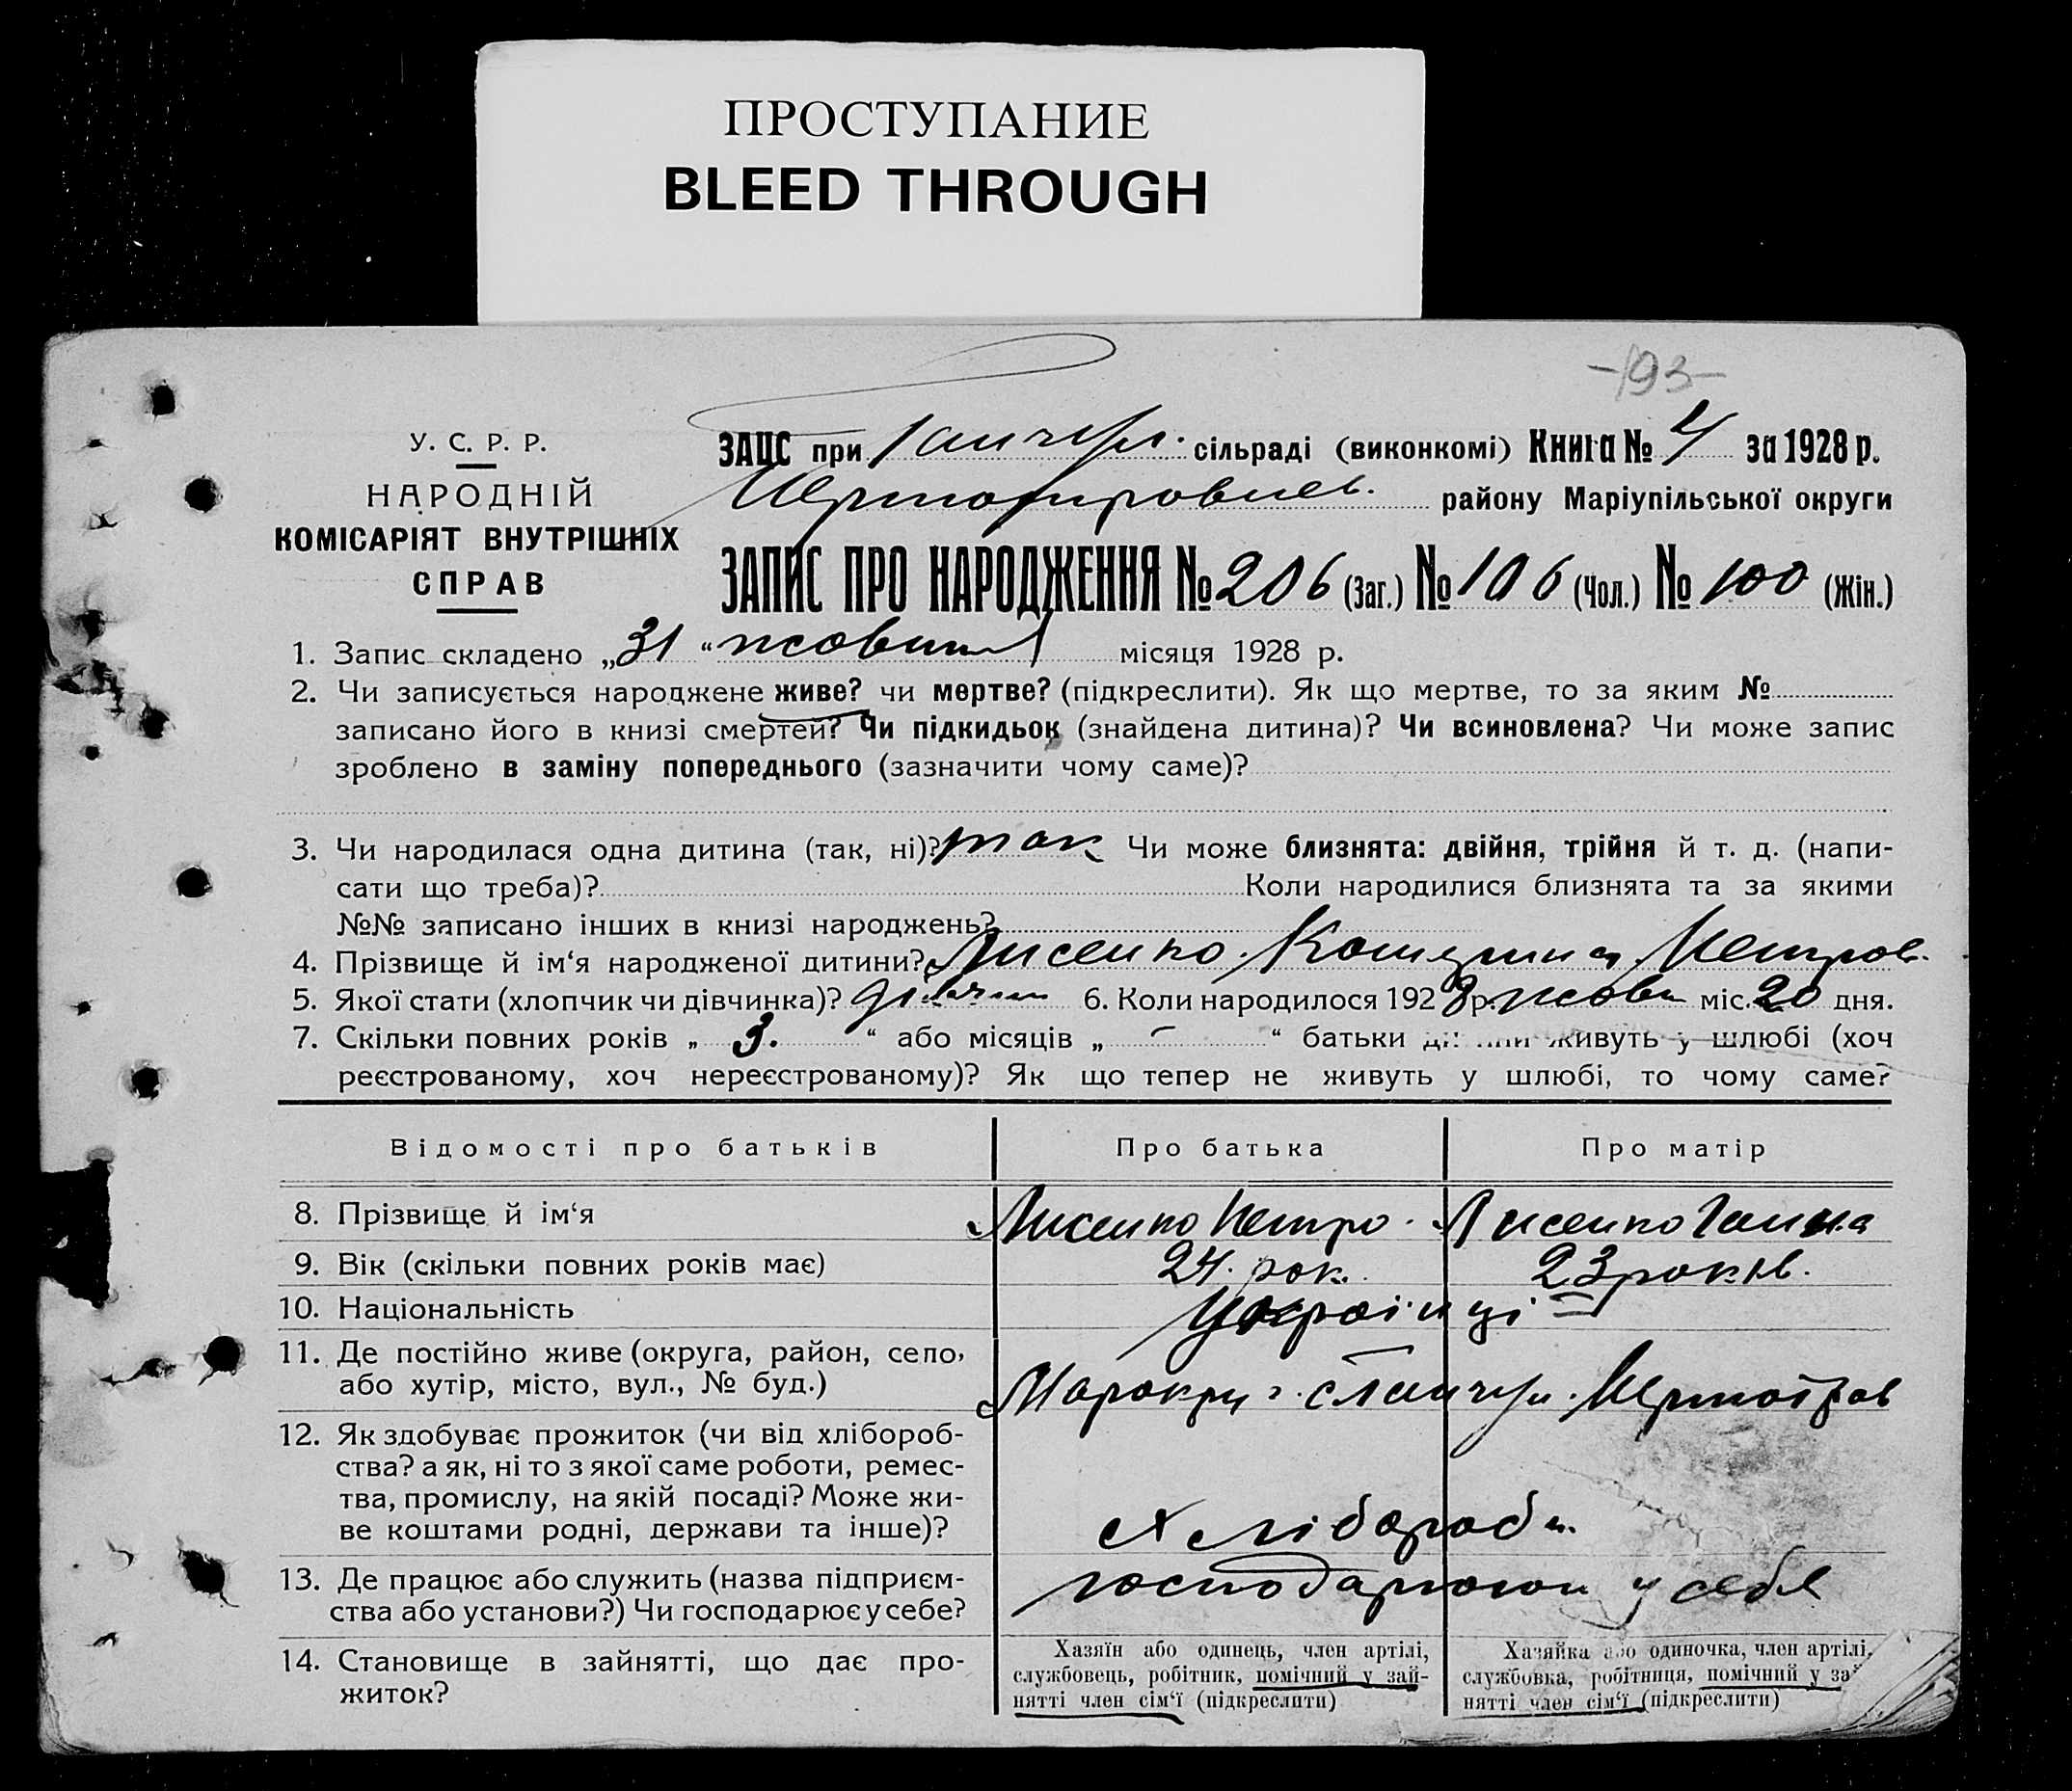 ПРОСТУПАНИЕ
BLEED THROUGH
-193-
У. С. Р. Р.
НАРОДНІЙ
КОМІСАРІЯТ ВНУТРІШНІХ
СПРАВ
ЗАЦС при сільраді (виконкомі) Книга № 4 за 1928 р.
району Маріупільської округи
ЗАПИС ПРО НАРОДЖЕННЯ № 206 (Заг.) № 106 (Чол.) № 100 (Жін.)
1. Запис складено „31“ жовтня місяця 1928 р.
2. Чи записується народжене живе? чи мертве? (підкреслити). Як що мертве, то за яким №
записано його в книзі смертей? Чи підкидьок (знайдена дитина)? Чи всиновлена? Чи може запис
зроблено в заміну попереднього (зазначити чому саме)?
3. Чи народилася одна дитина (так, ні)? так Чи може близнята: двійня, трійня й т. д. (напи-
сати що треба)? Коли народилися близнята та за якими
№№ записано інших в книзі народжень?
4. Прізвище й ім‘я народженої дитини? Лисенко Петров.
5. Якої стати (хлопчик чи дівчинка)? 6. Коли народилося 1928 р. жовт міс. 20 дня.
7. Скільки повних років „ 3. “ або місяців „ - “ батьки живуть у шлюбі (хоч
реєстрованому, хоч нереєстрованому)? Як що тепер не живуть у шлюбі, то чому саме?
Відомості про батьків Про батька Про матір
8. Прізвище й ім‘я Лисенко Петро. Лисенко Ганна
9. Вік (скільки повних років має) 24. рок. 23 років.
10. Національність Українці
11. Де постійно живе (округа, район, село,
або хутір, місто, вул., № буд.)
12. Як здобуває прожиток (чи від хлібороб-
ства? а як, ні то з якої саме роботи, ремес-
тва, промислу, на якій посаді? Може жи-
ве коштами родні, держави та інше)? Хлібороби.
13. Де працює або служить (назва підприєм-
ства або установи?) Чи господарює у себе? господарюют у себе
14. Становище в зайнятті, що дає про-
житок?
Хазяїн або одинець, член артілі,
службовець, робітник, помічний у зай-
нятті член сім‘ї (підкреслити)
Хазяйка або одиночка, член артілі,
службовка, робітниця, помічний у зай-
нятті член сім‘ї (підкреслити)